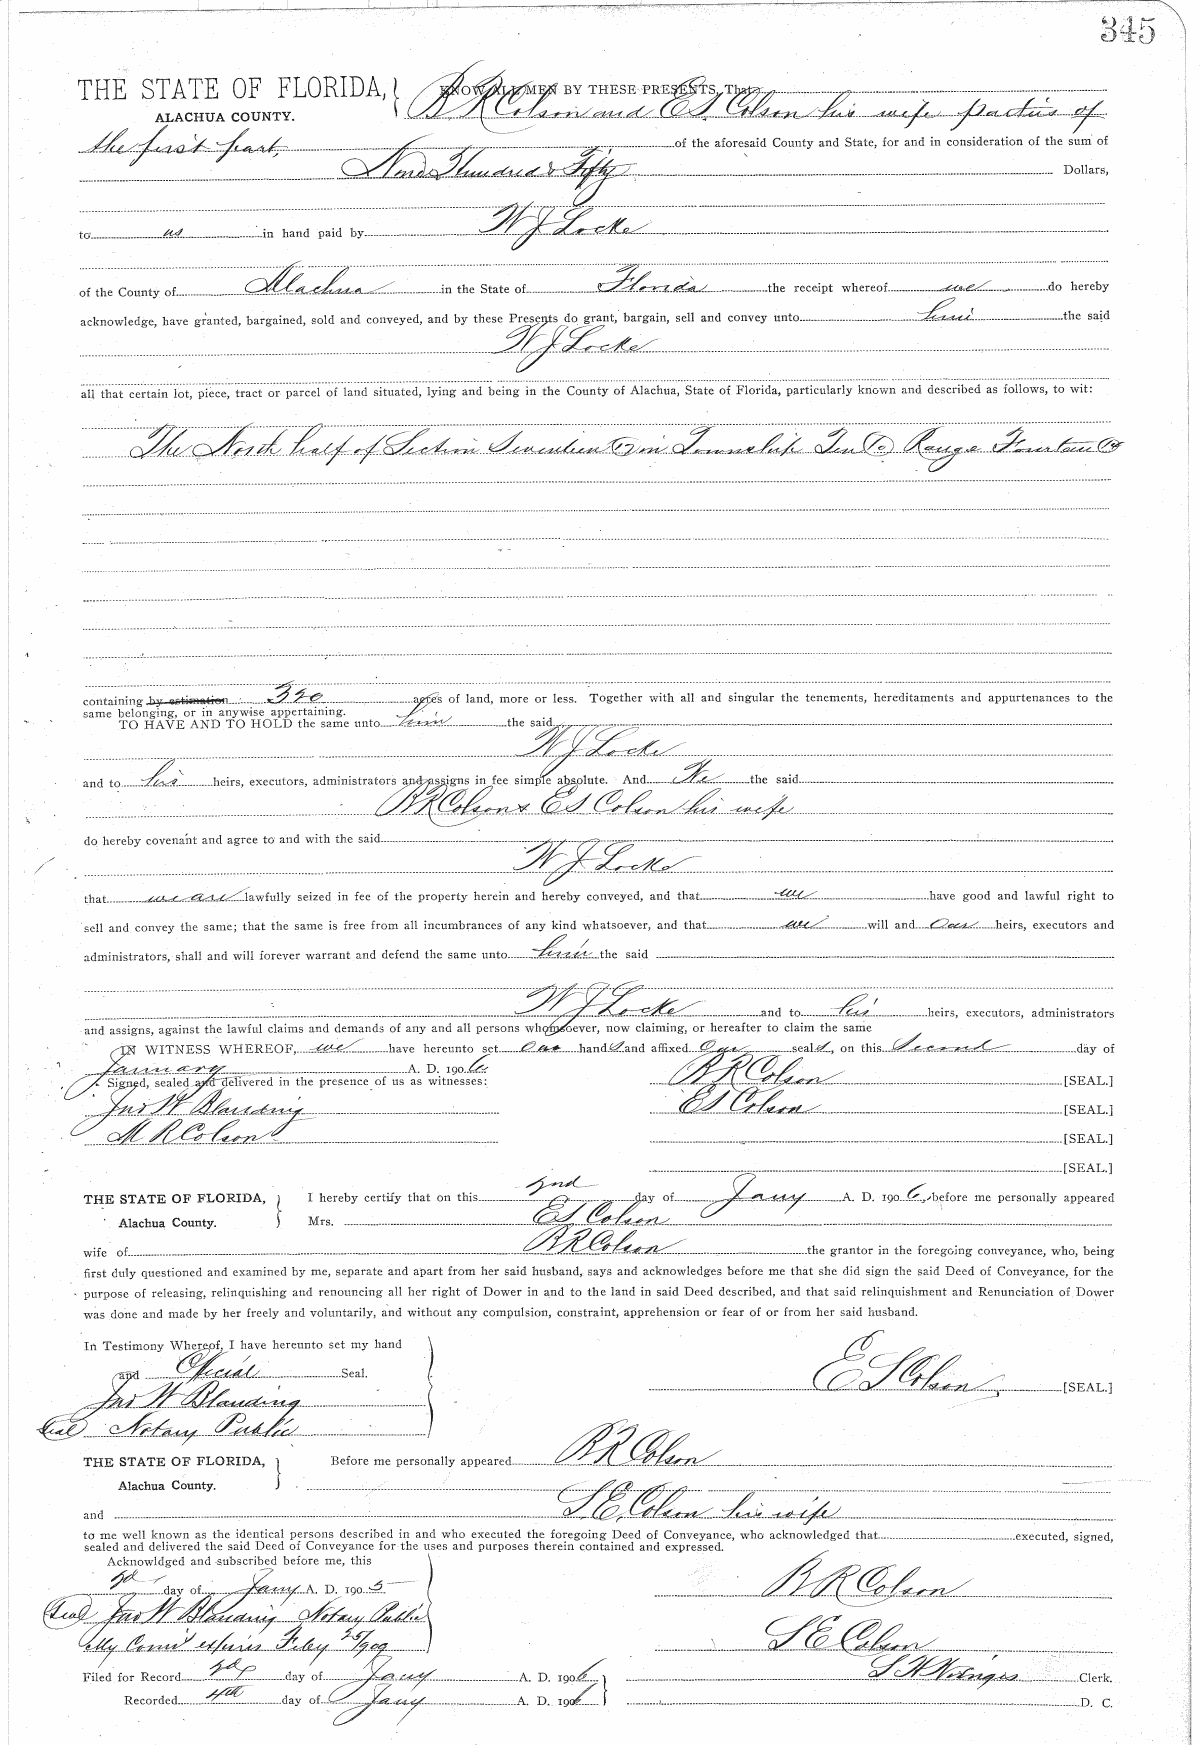 345
THE STATE OF FLORIDA, KNOW ALL MEN BY THESE PRESENTS, That
ALACHUA COUNTY. B R Colson and E S Colson his wife parties of
the first part, of the aforesaid County and State, for and in consideration of the sum of
Hundred & Fifty Dollars,
to us in hand paid by W J Locke
of the County of Alachua in the State of Florida the receipt whereof we do hereby
acknowledge, have granted, bargained, sold and conveyed, and by these Presents do grant, bargain, sell and convey unto him the said
W J Locke
all that certain lot, piece, tract or parcel of land situated, lying and being in the County of Alachua, State of Florida, particularly known and described as follows, to wit:
The North half of Section Seventeen (17) in Township Ten (10) Range Fourteen (14
containing by estimation 320 acres of land, more or less. Together with all and singular the tenements, hereditaments and appurtenances to the
same belonging, or in anywise appertaining.
TO HAVE AND TO HOLD the same unto him the said
W J Locke
and to his heirs, executors, administrators and assigns in fee simple absolute. And We the said
B R Colson & E S Colson his wife
do hereby covenant and agree to and with the said
W J Locke
that we are lawfully seized in fee of the property herein and hereby conveyed, and that we have good and lawful right to
sell and convey the same; that the same is free from all incumbrances of any kind whatsoever, and that we will and our heirs, executors and
administrators, shall and will forever warrant and defend the same unto him the said
W J Locke and to his heirs, executors, administrators
and assigns, against the lawful claims and demands of any and all persons whomsoever, now claiming, or hereafter to claim the same
IN WITNESS WHEREOF, we have hereunto set our hands and affixed our seals, on this Second day of
January A. D. 1906.
Signed, sealed and delivered in the presence of us as witnesses: B R Colson [SEAL.]
Jno W Blanding E S Colson [SEAL.]
M R Colson [SEAL.]
[SEAL.]
THE STATE OF FLORIDA, I hereby certify that on this 2nd day of Jany A. D. 1906, before me personally appeared
Alachua County. Mrs. E S Colson
wife of B R Colson the grantor in the foregoing conveyance, who, being
first duly questioned and examined by me, separate and apart from her said husband, says and acknowledges before me that she did sign the said Deed of Conveyance, for the
purpose of releasing, relinquishing and renouncing all her right of Dower in and to the land in said Deed described, and that said relinquishment and Renunciation of Dower
was done and made by her freely and voluntarily, and without any compulsion, constraint, apprehension or fear of or from her said husband.
In Testimony Whereof, I have hereunto set my hand
and Official Seal. E S Colson [SEAL.]
Jno W Blanding
Seal Notary Public
THE STATE OF FLORIDA, Before me personally appeared B R Colson
Alachua County.
and S E Colson his wife
to me well known as the identical persons described in and who executed the foregoing Deed of Conveyance, who acknowledged that executed, signed,
sealed and delivered the said Deed of Conveyance for the uses and purposes therein contained and expressed.
Acknowldged and subscribed before me, this
2d day of Jany A. D. 1905 B R Colson
Seal Jno W Blanding Notary Public
My Comis expires Feby 25/909 S E Colson
Filed for Record day of Jany A. D. 1906 S H Wienges Clerk.
Recorded 4th day of Jany A. D. 1906 D. C.